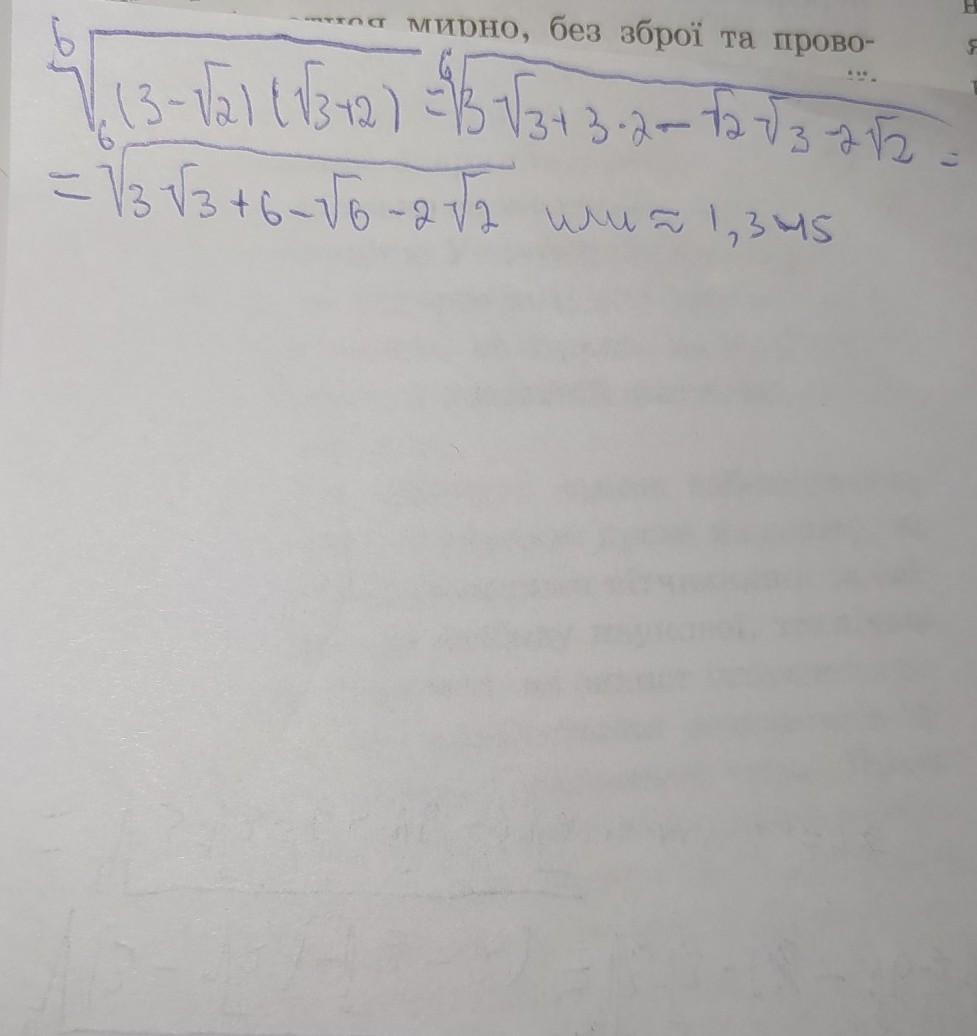 мирно, без зброї та прово-
⁶√(3-√2)(√3+2) = ⁶√3√3+3·2-√2√3-2√2 =
= ⁶√3√3+6-√6-2√2 или ≈ 1,3415